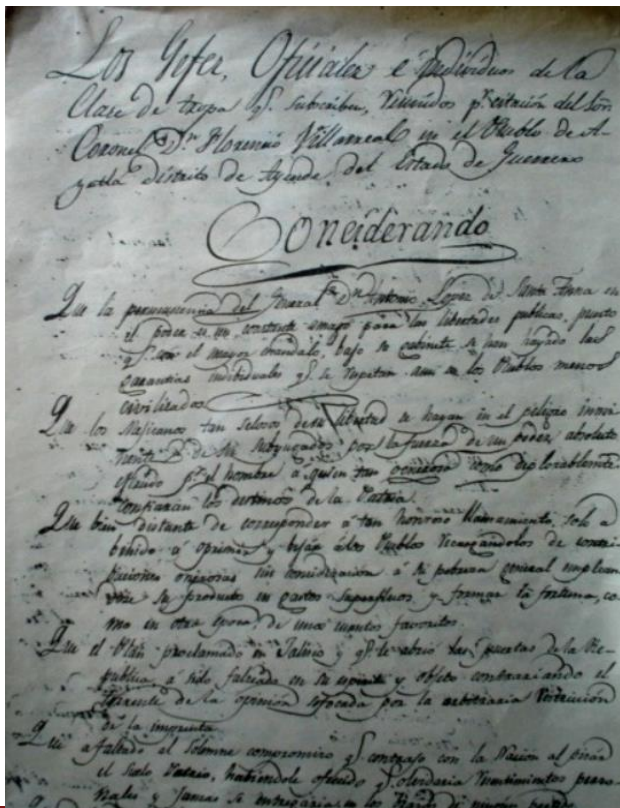 Los Gefes, Oficiales é Individuos de la
Clase de tropa q.e subscriben, Reunidos p.r citación del Sor.
Coronel D.n Florencio Villarreal en el Pueblo de A-
yutla distrito de Ayende, del Estado de Guerrero
Considerando
Que la permanencia del General D.n Antonio Lopez de Santa Anna en
el poder es un constante amago para las libertades publicas, puesto
q.e con el mayor escándalo, bajo su gabinete se han hayado las
garantias individuales q.e se respetan aun en los Pueblos menos
civilizados
Que los Mejicanos tan selosos de su libertad se hayan en el peligro inmi
nente de ser subyugados por la fuerza de un poder absoluto
p.r el hombre á quien tan como deplorablemente
confiaran los destinos de la Patria.
Que bien distante de corresponder á tan honroso llamamiento, solo a
benido á oprimir y bejar á los Pueblos Recargándolos de contri
buciones onerosas sin consideración á la pobreza general emplean
dose su producto en gastos superfluos y formar la fortuna, co
mo en otra época de unos cuantos favoritos.
Que el Plan proclamado en Jalisco y q.e le abrió las puertas de la Re-
publica, á sido falseado en su espiritu y objeto contrariando el
torrente de la opinión sofocada por la arbitraria Restricción
de la imprenta.
Que a faltado al solemne compromiso q.e contrajo con la Nación al pisar
el Suelo Patrio, habiendole ofrecido q.e olvidaria Resentimientos perso
nales y Jamas se entregaria en los